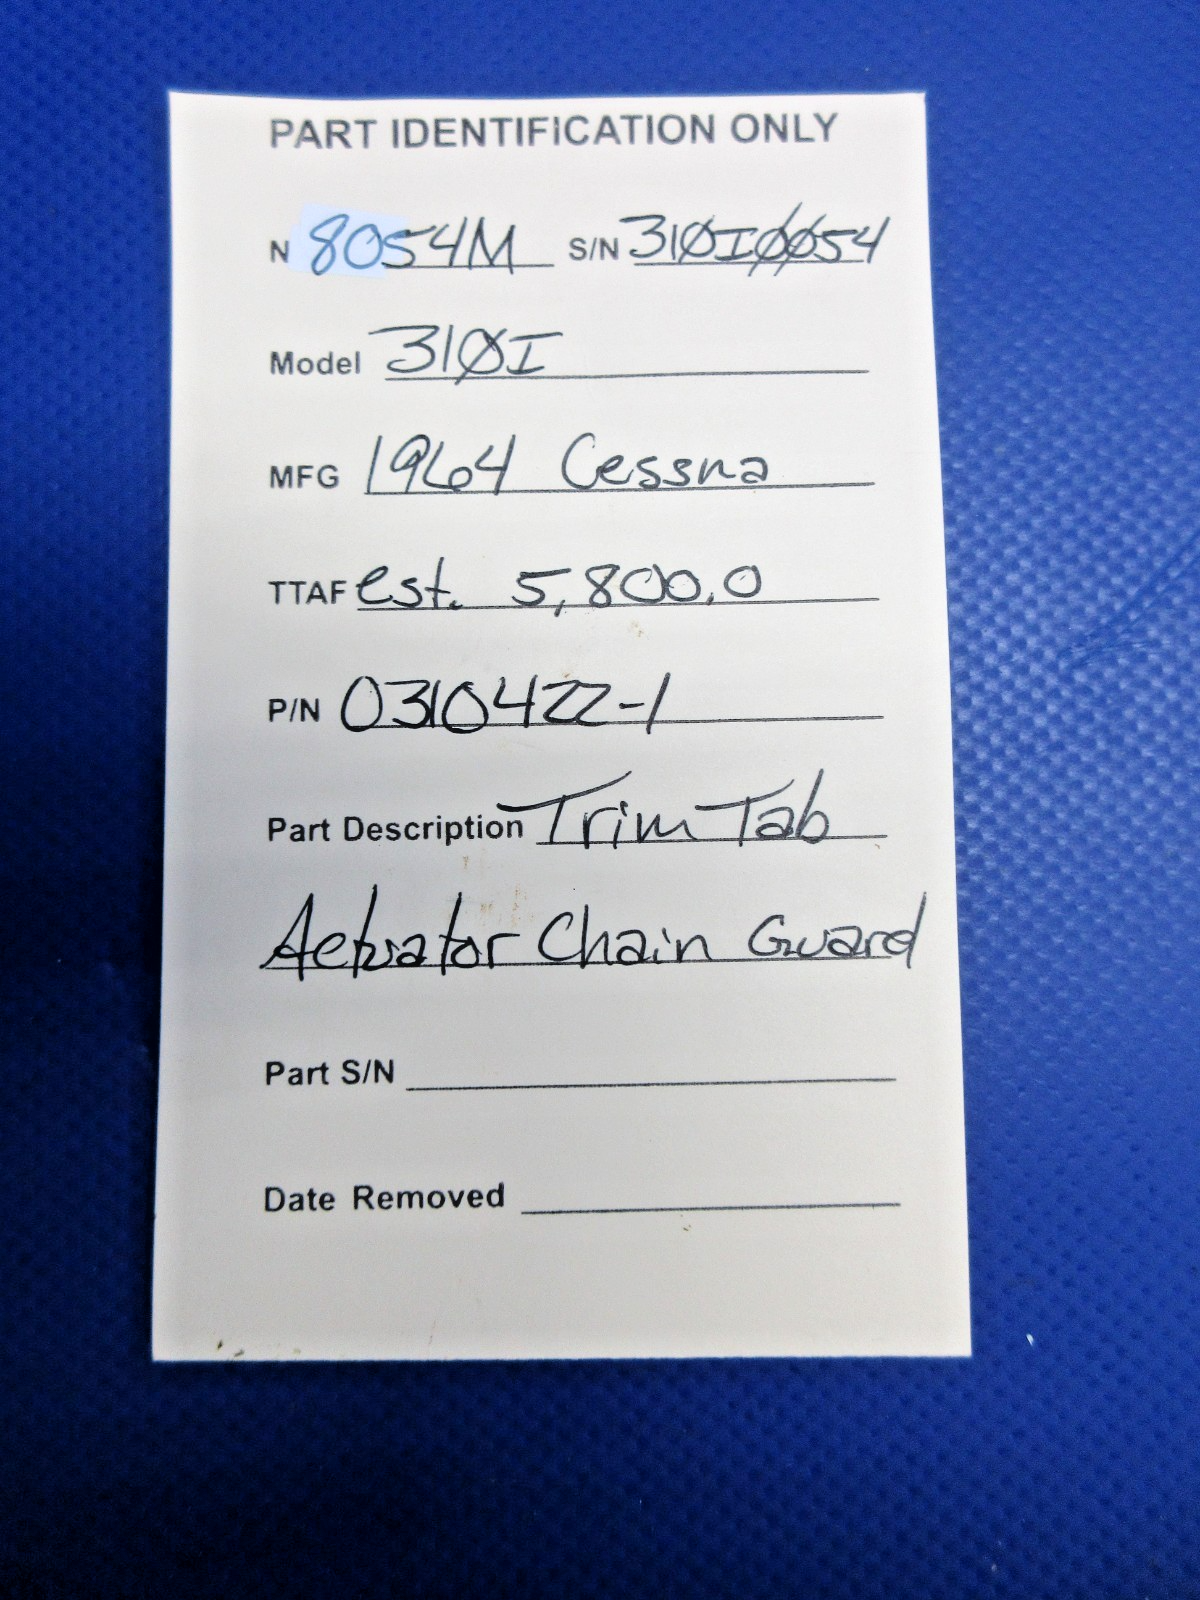 PART IDENTIFICATION ONLY
N 8054M S/N 310I0054
Model 310I
MFG 1964 Cessna
TTAF est. 5,800.0
P/N 0310422-1
Part Description Trim Tab
Actuator Chain Guard
Part S/N
Date Removed